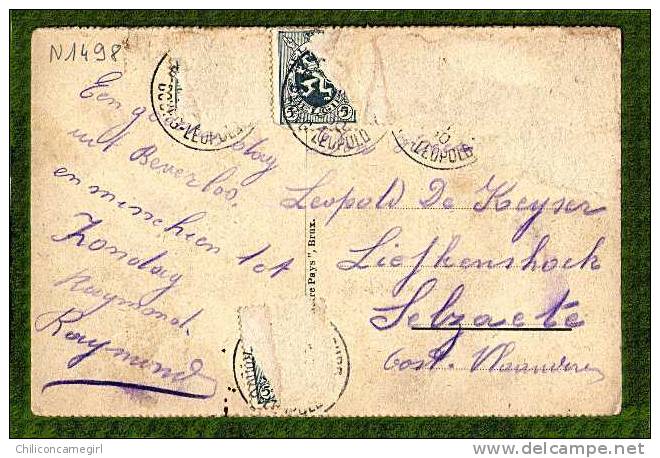 N1498
Een
uit Beverloo.
en misschien tot
Zondag
Raymond.
Raymond
Leopold De Keyser
Liefkenshoek
Selzaete
Oost. Vlaanderen
re Pays", Brux.
BOURG-LEOPOLD
LEOPOLD
LEOPOLD
5 5
5
Chiliconcamegirl
www.delcampe.net